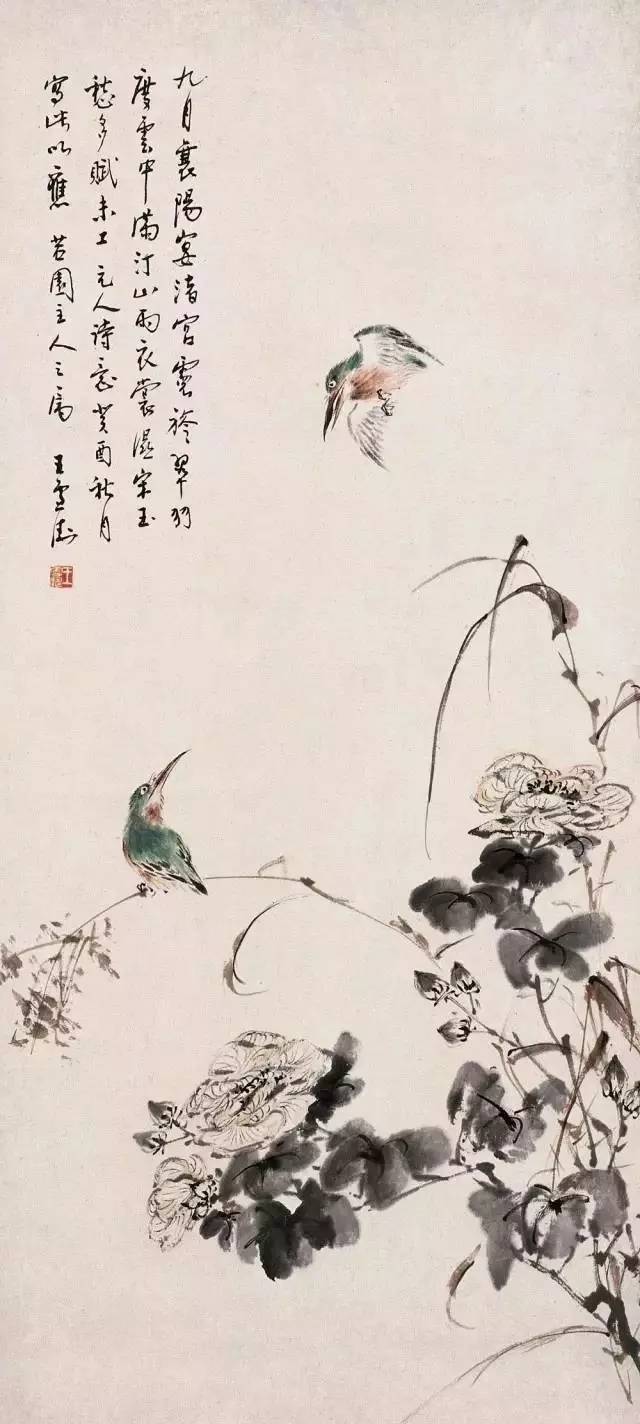 九月襄陽宴渚宮霓旌翠羽
度雲中滿汀山雨衣裳濕宋玉
愁多賦未工元人詩意癸酉秋月
寫此以應 園主人之屬 王雪濤